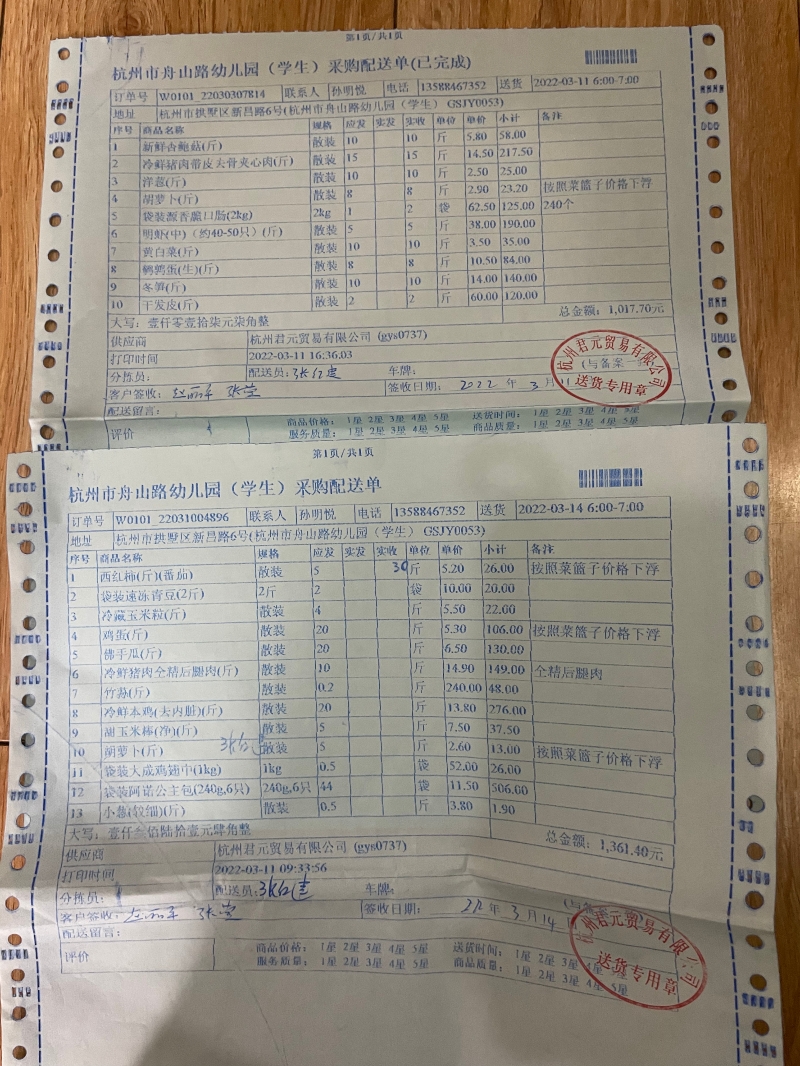 第1页/共1页
杭州市舟山路幼儿园（学生）采购配送单(已完成)
订单号 W0101_22030307814 联系人 孙明悦 电话 13588467352 送货 2022-03-11 6:00-7:00
地址 杭州市拱墅区新昌路6号(杭州市舟山路幼儿园（学生）GSJY0053)
序号 商品名称 规格 应发 实发 实收 单位 单价 小计 备注
1 新鲜杏鲍菇(斤) 散装 10 10 斤 5.80 58.00
2 冷鲜猪肉带皮去骨夹心肉(斤) 散装 15 15 斤 14.50 217.50
3 洋葱(斤) 散装 10 10 斤 2.50 25.00
4 胡萝卜(斤) 散装 8 8 斤 2.90 23.20 按照菜篮子价格下浮
5 袋装灏香脆口肠(2kg) 2kg 1 2 袋 62.50 125.00 240个
6 明虾(中)（约40-50只）(斤) 散装 5 5 斤 38.00 190.00
7 黄白菜(斤) 散装 10 10 斤 3.50 35.00
8 鹌鹑蛋(生)(斤) 散装 8 8 斤 10.50 84.00
9 冬笋(斤) 散装 10 10 斤 14.00 140.00
10 干发皮(斤) 散装 2 2 斤 60.00 120.00
大写：壹仟零壹拾柒元柒角整 总金额：1,017.70元
供应商 杭州君元贸易有限公司 (gys0737)
打印时间 2022-03-11 16:36.03 (与备案一
分拣员： 配送员：张红建 车牌：
客户签收： 签收日期： 2022 年 3 月 11
杭州君元贸易有限公司
送货专用章
配送留言：
评价 商品价格： 1星 2星 3星 4星 5星 送货时间： 1星 2星 3星 4星 5星
服务质量： 1星 2星 3星 4星 5星 商品质量： 1星 2星 3星 4星 5星
第1页/共1页
杭州市舟山路幼儿园（学生）采购配送单
订单号 W0101_22031004896 联系人 孙明悦 电话 13588467352 送货 2022-03-14 6:00-7:00
地址 杭州市拱墅区新昌路6号(杭州市舟山路幼儿园（学生）GSJY0053)
序号 商品名称 规格 应发 实发 实收 单位 单价 小计 备注
1 西红柿(斤)(番茄) 散装 5 30 斤 5.20 26.00 按照菜篮子价格下浮
2 袋装速冻青豆(2斤) 2斤 2 袋 10.00 20.00
3 冷藏玉米粒(斤) 散装 4 斤 5.50 22.00
4 鸡蛋(斤) 散装 20 斤 5.30 106.00 按照菜篮子价格下浮
5 佛手瓜(斤) 散装 20 斤 6.50 130.00
6 冷鲜猪肉全精后腿肉(斤) 散装 10 斤 14.90 149.00 全精后腿肉
7 竹荪(斤) 散装 0.2 斤 240.00 48.00
8 冷鲜本鸡(去内脏)(斤) 散装 20 斤 13.80 276.00
9 甜玉米棒(净)(斤) 散装 5 斤 7.50 37.50
10 胡萝卜(斤) 张红建 散装 5 斤 2.60 13.00 按照菜篮子价格下浮
11 袋装大成鸡翅中(1kg) 1kg 0.5 袋 52.00 26.00
12 袋装阿诺公主包(240g,6只) 240g,6只 44 袋 11.50 506.00
13 小葱(较细)(斤) 散装 0.5 斤 3.80 1.90
大写：壹仟叁佰陆拾壹元肆角整 总金额：1,361.40元
供应商 杭州君元贸易有限公司 (gys0737)
打印时间 2022-03-11 09:33:56
分拣员： 配送员：张红建 车牌： (与备
客户签收： 签收日期： 22 年 3 月 14
杭州君元贸易有限公司
送货专用章
配送留言：
评价 商品价格： 1星 2星 3星 4星 5星 送货时间： 1星 2星 3星 4星 5星
服务质量： 1星 2星 3星 4星 5星 商品质量： 1星 2星 3星 4星 5星